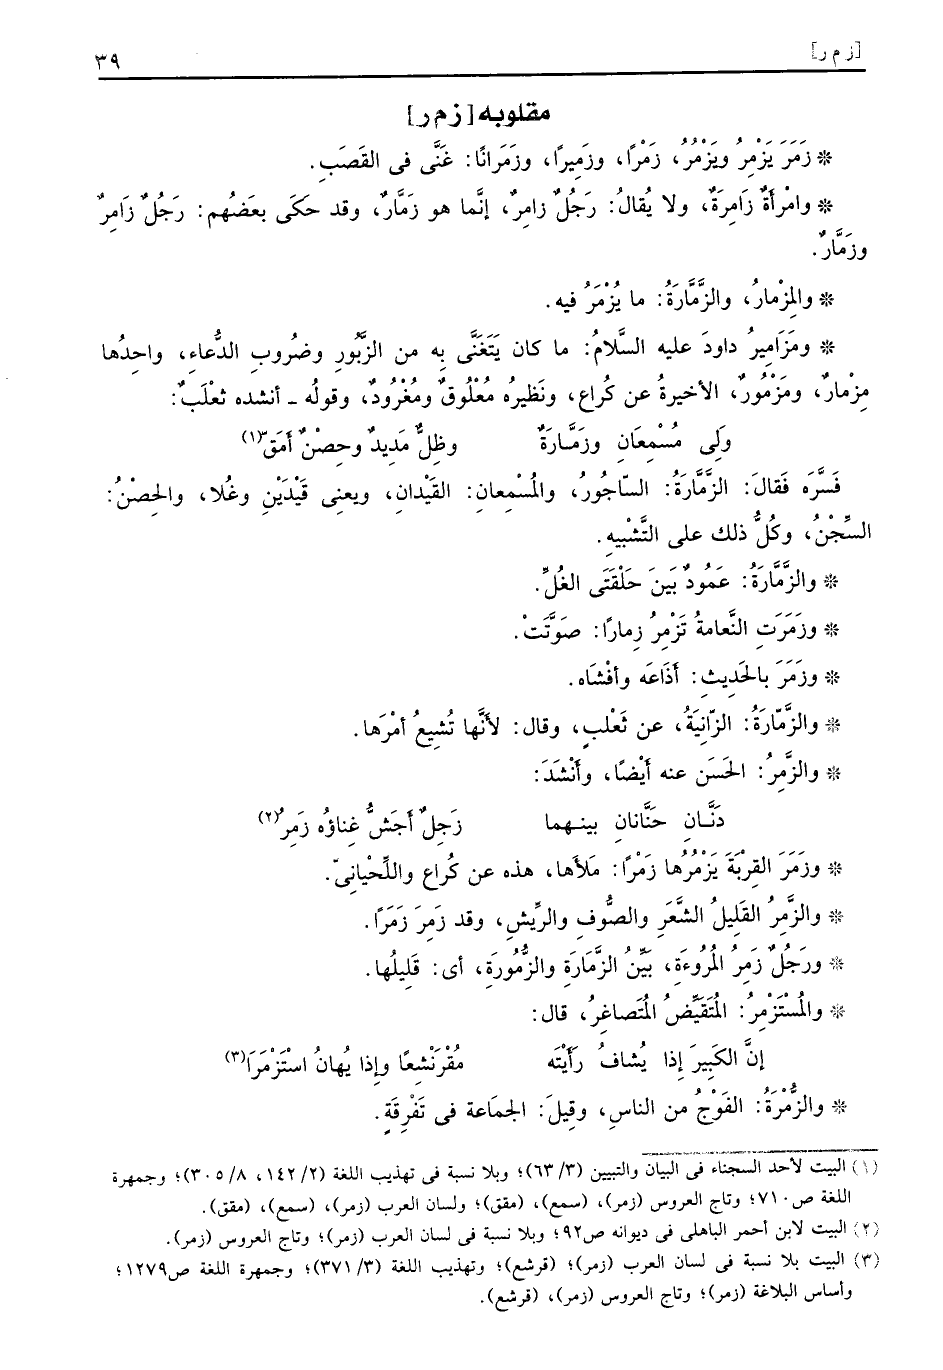 [ز م ر]
٣٩
مقلوبه [ ز م ر ]
* زَمَرَ يَزْمِرُ ويَزْمُرُ، زَمْرًا، وزَمِيرًا، وزَمَرانًا: غَنَّى فى القَصَبِ.
* وامْرأةٌ زَامِرَةٌ، ولا يُقالُ: رَجُلٌ زامِرٌ، إنَّما هو زَمَّارٌ، وقد حكَى بعضُهم: رَجُلٌ زَامِرٌ
وزَمَّارٌ.
* والمِزْمارُ، والزَّمَّارَةُ: ما يُزْمَرُ فيه.
* ومَزَامِيرُ داودَ عليه السَّلامُ: ما كان يَتَغَنَّى بِه من الزَّبُورِ وضُروبِ الدُّعاءِ، واحِدُها
مِزْمارٌ، ومَزْمُورٌ، الأخيرةُ عن كُراع، ونَظيرُه مُعْلُوقٌ ومُغْرُودٌ، وقولُه ـ أنشده ثعْلَبٌ:
وَلِى مُسْمِعَانِ وزَمَّارَةٌ وظِلٌّ مَدِيدٌ وحِصْنٌ أَمَقّ(١)
فَسَّرَه فَقالَ: الزَّمَّارَةُ: السّاجُورُ، والمُسْمِعانِ: القَيْدانِ، ويعنِى قَيْدَيْنِ وغُلا، والحِصْنُ:
السِّجْنُ، وكُلُّ ذلك على التَّشْبِيهِ.
* والزَّمَّارَةُ: عَمُودٌ بَينَ حَلْقَتَى الغُلِّ.
* وزَمَرَتِ النَّعامةُ تَزْمِرُ زِمارًا: صَوَّتَتْ.
* وزَمَرَ بالحَدِيثِ: أذَاعَه وأفْشَاه.
* والزَّمّارَةُ: الزّانِيَةُ، عن ثَعْلبٍ، وقال: لأنَّها تُشِيعُ أمْرَها.
* والزَّمِرُ: الحَسَن عنه أيْضًا، وأنْشَدَ:
دَنَّانِ حَنَّانانِ بينهما زَجِلٌ أجَشُّ غِناؤُه زَمِرُ(٢)
* وزَمَرَ القِرْبَةَ يَزْمُرُها زَمْرًا: مَلأَها، هذه عن كُراع واللِّحْيانِىّ.
* والزَّمِرُ القَلِيلُ الشَّعَرِ والصُّوفِ والرِّيشِ، وقد زَمِرَ زَمَرًا.
* ورَجُلٌ زَمِرُ المُرُوءَةِ، بَيِّنُ الزَّمَارَةِ والزُّمُورَةِ، أى: قَلِيلُها.
* والمُسْتَزْمِرُ: المُتَقَبِّضُ المُتَصاغِرُ، قال:
إنَّ الكَبِيرَ إذا يُشافُ رَأيْتَه مُقْرَنْشِعًا وإذا يُهانُ اسْتَزْمَرَا(٣)
* والزُّمْرَةُ: الفَوْجُ من الناسِ، وقيلَ: الجمَاعة فى تَفْرِقَةٍ.
(١) البيت لأحد السجناء فى البيان والتبيين (٣/ ٦٣)؛ وبلا نسبة فى تهذيب اللغة (٢/ ١٤٢، ٨/ ٣٠٥)؛ وجمهرة
اللغة ص٧١٠؛ وتاج العروس (زمر)، (سمع)، (مقق)؛ ولسان العرب (زمر)، (سمع)، (مقق).
(٢) البيت لابن أحمر الباهلى فى ديوانه ص٩٢؛ وبلا نسبة فى لسان العرب (زمر)؛ وتاج العروس (زمر).
(٣) البيت بلا نسبة فى لسان العرب (زمر)؛ (قرشع)؛ وتهذيب اللغة (٣/ ٣٧١)؛ وجمهرة اللغة ص١٢٧٩؛
وأساس البلاغة (زمر)؛ وتاج العروس (زمر)، (قرشع).